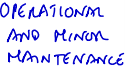 OPERATIONAL
AND MINOR
MAINTENANCE